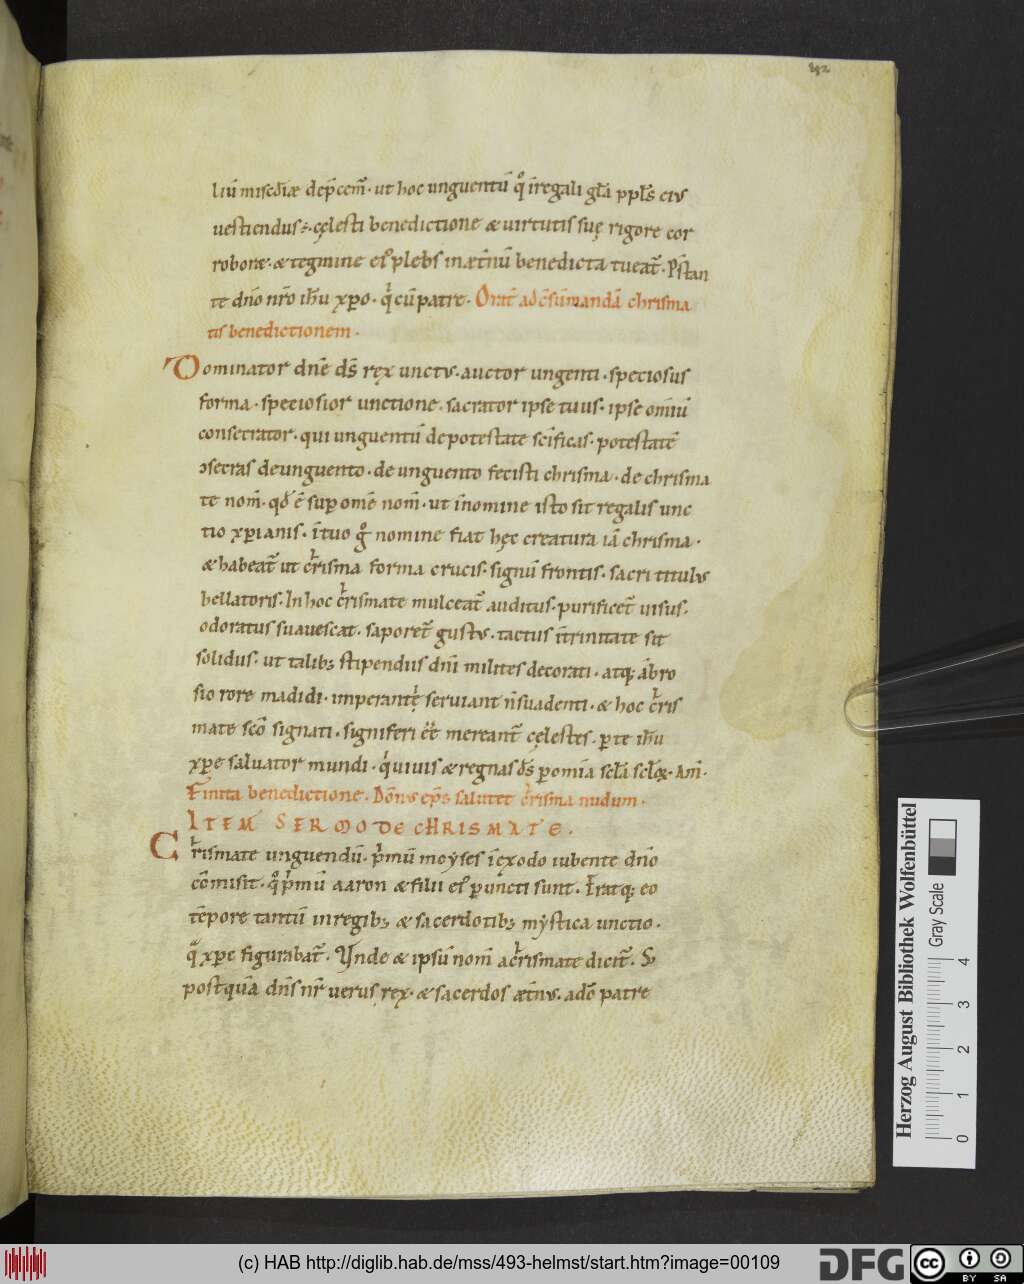 52
liū misc̄diæ dep̄cem̄· ut hoc unguentū q̊ īregali gl̄a ppl̄s eiu
uestiendus ē· cęlesti benedictione & uirtutis suę rigore cor
robor&· & tegmine ei plebs in æt̄nū benedicta tueat̄· P̄stan
te dn̄o nr̄o ih̄u xp̄o· q̇ cū patre· Orat̄ ad c̄sūmandā chrisma
tis benedictionem·
Dominator dn̄e ds̄ ręx unctꝰ· auctor ungenti· speciosus
forma· speciosior unctione· sacrator ipse tuus· ipse om̄iū
consecrator· qui unguentū de potestate sc̄ificas· potestatē
ɔsecras de unguento· de unguento fecisti chrisma· de chrisma
te nom̄· qd̄ ē sup om̄e nom̄· ut īnomine isto sit regalis unc
tio xp̄ianis· ītuo g̊ nomine fiat hęc creatura iā chrisma·
& habeat̄ ut cr̄isma forma crucis· signū frontis· sacri titulꝰ
bellatoris· In hoc cr̄ismate mulceat̄ auditus· purificet̄ uisus·
odoratus suauescat· saporet̄ gustꝰ· tactus ītrinitate sit
solidus· ut talibꝫ stipendiis dn̄i milites decorati· atqꝫ ābro
sio rore madidi· imperante seruiant n̄ suadenti· & hoc cr̄is
mate sc̄o signati· signiferi mereant̄ cęlestes· p te ih̄u
xp̄e saluator mundi· q̇ uiuis & regnas ds̄ p om̄ia sc̄la sc̄loꝝ· Am̄·
Finita benedictione· Dōnꝰ ep̄s salutet cr̄isma nudum·
ITEM SERMO DE CHRISMATE·
Cr̄ismate unguendū· p̄mū moẏses ī exodo iubente dn̄o
cōmisit· q̊ p̄mū aaron & filii ei puncti sunt· Eratqꝫ eo
tēpore tantū in regibꝫ & sacerdotibꝫ mẏstica unctio·
q̄ xp̄c figurabat̄· Unde & ipsū nom̄ a cr̄ismate dicit̄· S;
postquā dn̄s nr̄ uerus ręx· & sacerdos æt̄nꝰ· a dō patre
Herzog August Bibliothek Wolfenbüttel
Gray Scale
0 1 2 3 4
(c) HAB http://diglib.hab.de/mss/493-helmst/start.htm?image=00109
DFG
cc BY SA